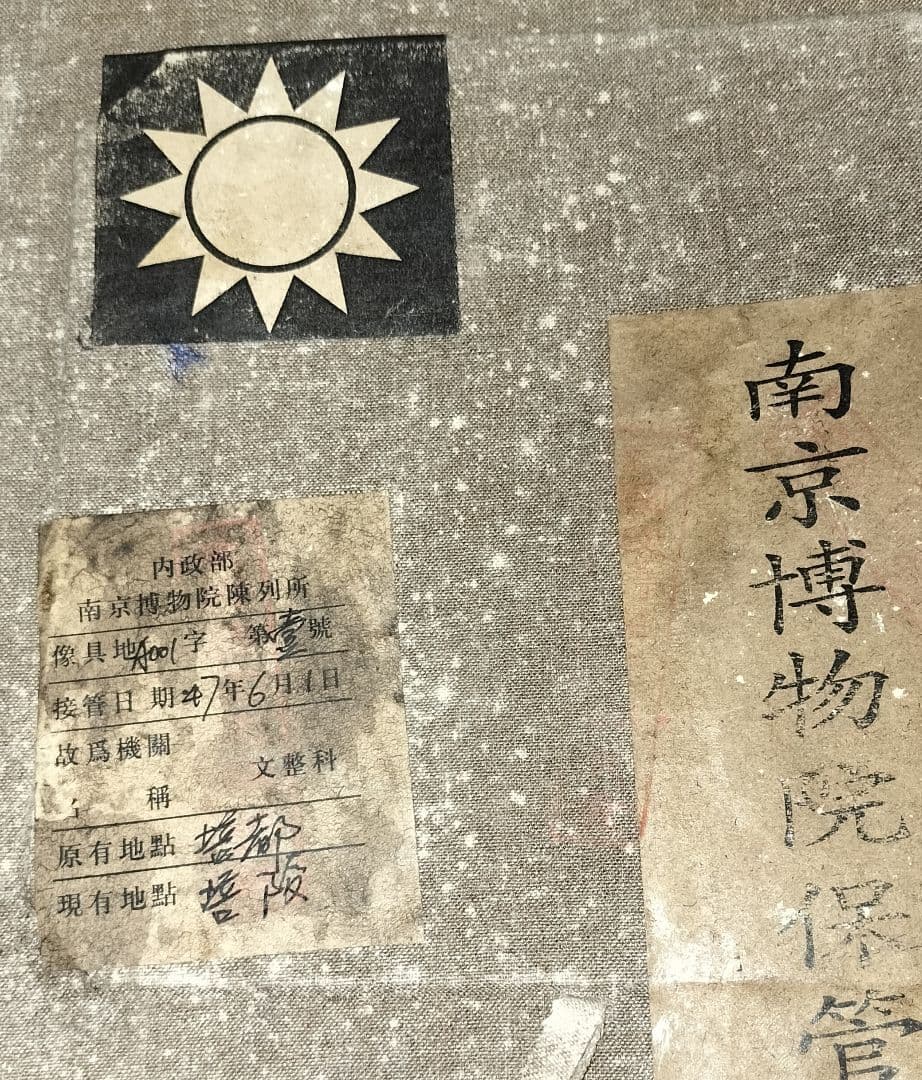 內政部
南京博物院陳列所
傢具地A001字 第壹號
接管日期47年6月1日
故爲機關
文整科
稱
原有地點 塔都
現有地點 塔 阪
南京博物院保管